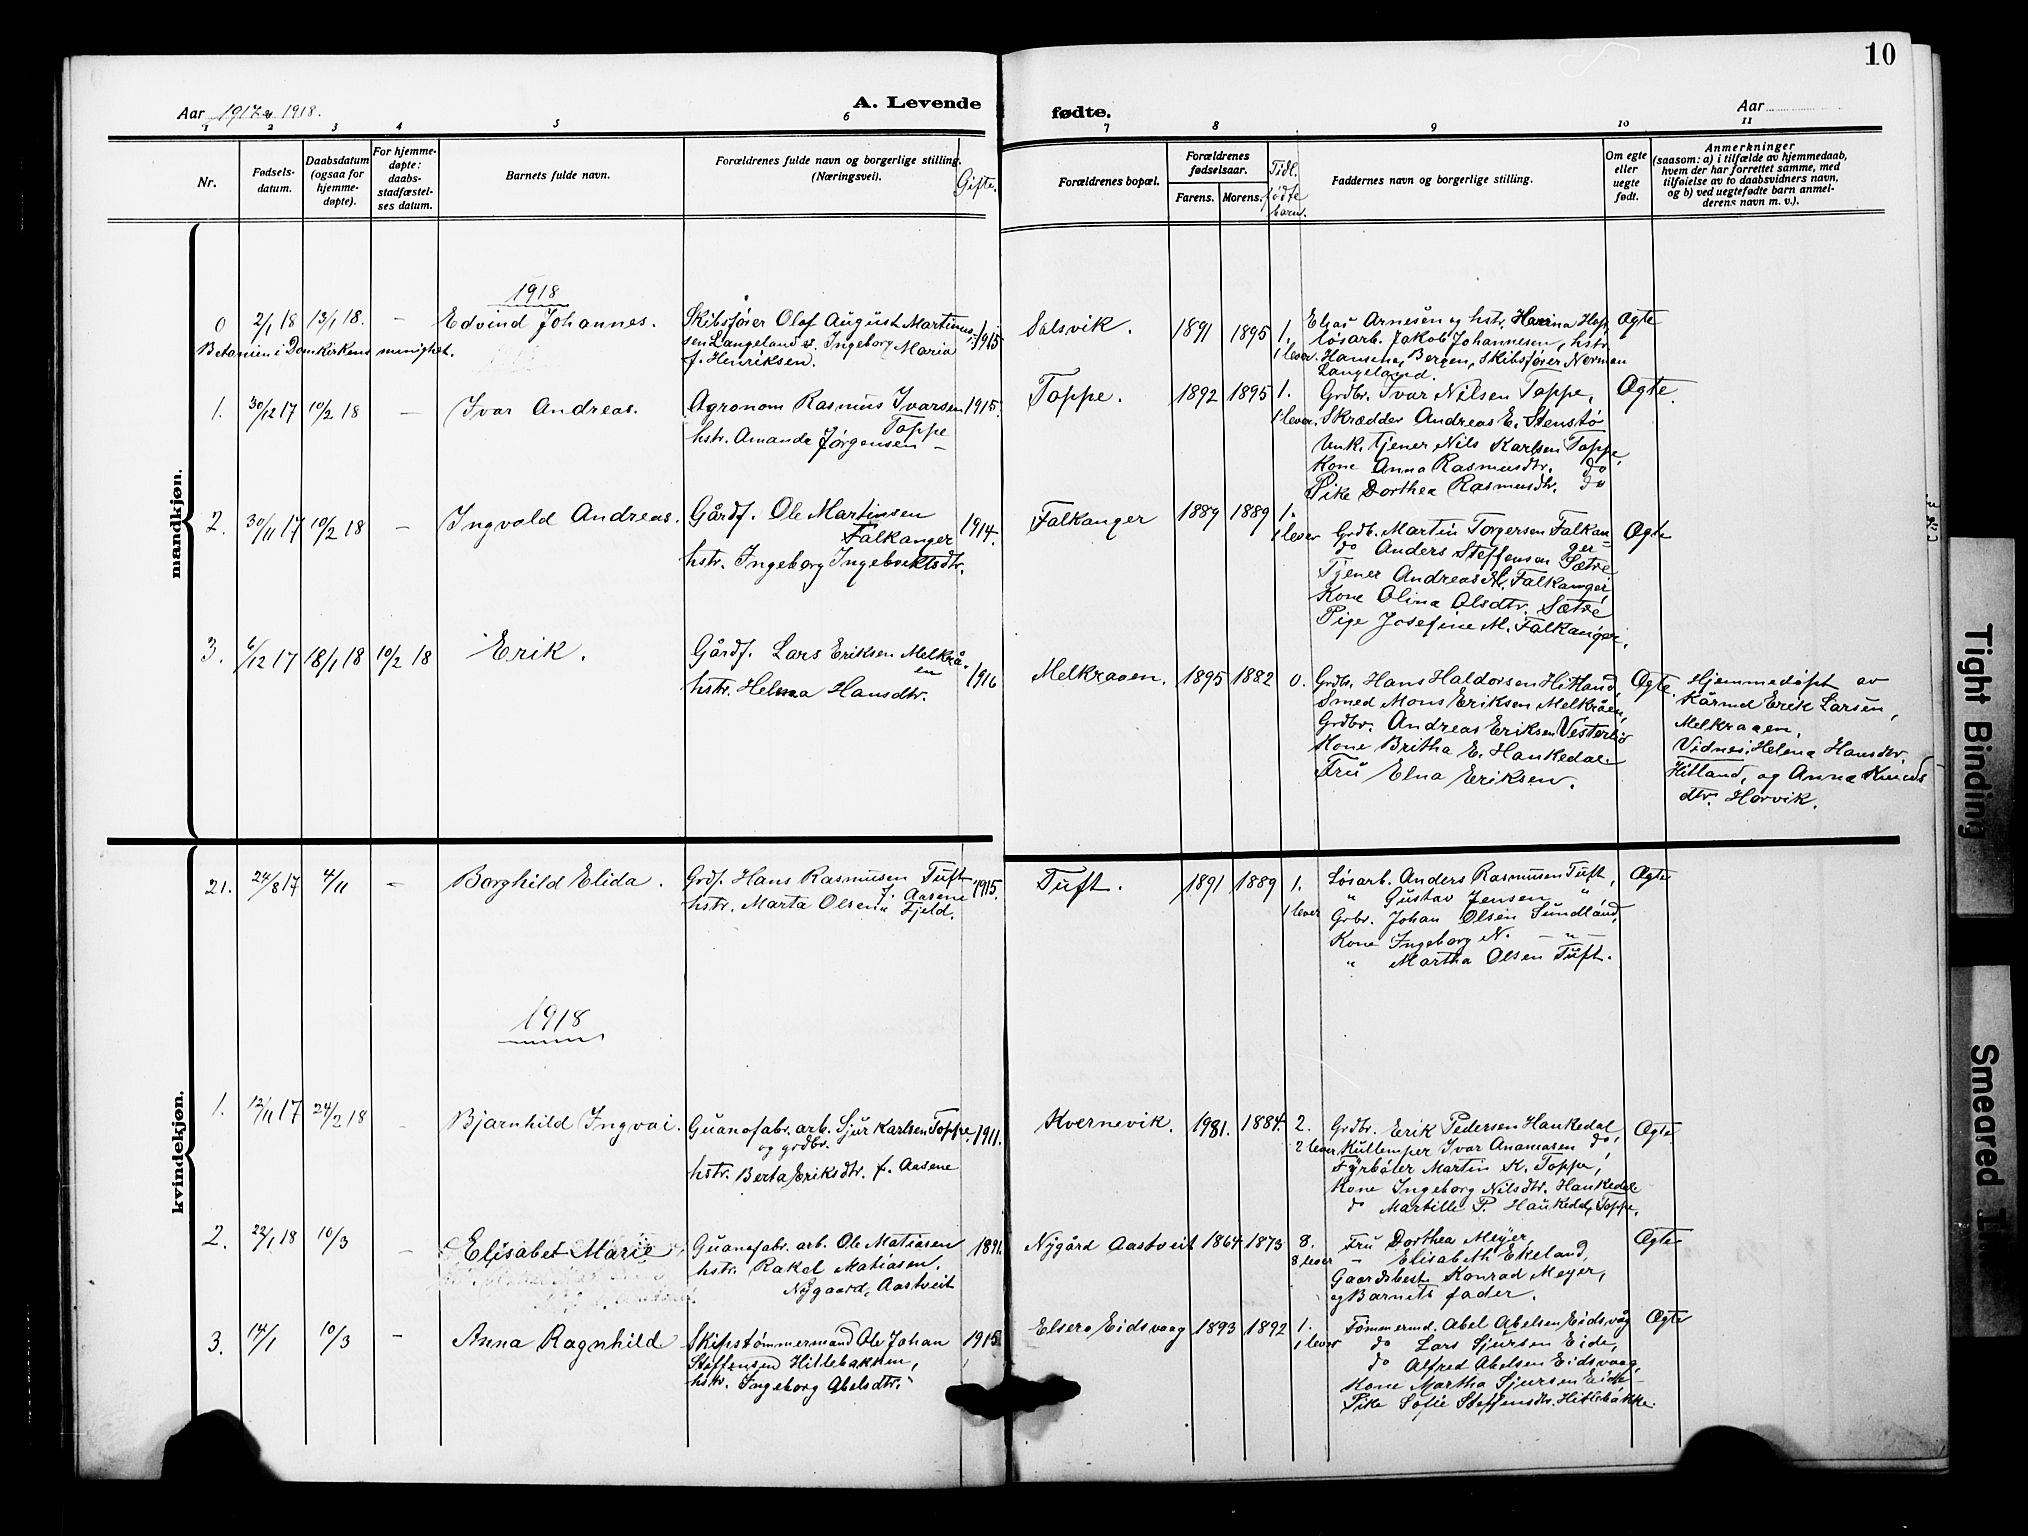 10
Aar 1917 & 1918.
A. Levende
fødte.
Aar
1 2 3 4 5 6 7 8 9 10 11
Nr.
Fødsels-
datum.
Daabsdatum
(ogsaa for
hjemme-
døpte).
For hjemme-
døpte:
daabs-
stadfæstel-
ses datum.
Barnets fulde navn.
Forældrenes fulde navn og borgerlige stilling.
(Næringsvei).
Gifte.
Forældrenes bopæl.
Forældrenes
fødselsaar.
Farens. Morens.
Tidl.
fødte
barn.
Faddernes navn og borgerlige stilling.
Om egte
eller
uegte
født.
Anmerkninger
(saasom: a) i tilfælde av hjemmedaab,
hvem der har forrettet samme, med
tilføielse av to daabsvidners navn,
og b) ved uegtefødte barn anmel-
derens navn m. v.).
mandkjøn.
1918
0 2/1 18 13/1 18. – Edvind Johannes.
Betanien i Domkirkens menighet.
Skibsfører Olaf August Martinus-
sen Langeland &. Ingeborg Maria
f. Henriksen.
1915
Salsvik.
1891 1895 1.
1 lever.
Elias Arnesen & hstr. Hanna Hop,
løsarb. Jakob Johannesen, hstr.
Hansena, Bergen, Skibsfører Norman
Langeland.
Ægte
1. 30/12 17 10/2 18 – Ivar Andreas.
Agronom Rasmus Ivarsen
Toppe
hstr. Amanda Jørgensen –
1915.
Toppe.
1892 1895 1.
1 lever.
Grdbr. Ivar Nilsen Toppe,
Skrædder Andreas E. Stenstø
Unk. Tjener Nils Karlsen Toppe,
Kone Anna Rasmusdtr. do
Pike Dorthea Rasmusdtr. do
Ægte.
2. 30/11 17 10/2 18 – Ingvald Andreas.
Gårdf. Ole Martinsen
Falkanger
hstr. Ingeborg Ingebrektsdtr.
1914.
Falkanger
1889 1889 1.
1 lever
Grdb. Martin Torgersen Falkan-
ger
do Anders Steffensen Sætre
Tjener Andreas M. Falkanger,
Kone Olina Olsdtr. Sætre
Pige Josefine M. Falkanger.
Ægte
3. 6/12 17 18/1 18 10/2 18 Erik.
Gårdf. Lars Eriksen Melkrå-
en
hstr. Helena Hansdtr.
1916
Melkraaen.
1895 1882 0.
Grdbr. Hans Haldorsen Hitland,
Smed Mons Eriksen Melkråen,
Grdbr. Andreas Eriksen Vesterbø
Kone Britha E. Haukedal.
Fru Elna Eriksen.
Ægte.
Hjemmedøpt av
Kårmd Erik Larsen,
Melkraaen.
Vidner: Helena Hansdtr.
Hitland, og Anna Knuds
dtr. Horvik.
kvindekjøn.
21. 24/8 17 4/11 – Borghild Elida.
Grdf. Hans Rasmusen Tuft
hstr. Marta Olsen f. Aasene
" Fjeld.
1915.
Tuft.
1891 1889 1.
1 lever
Løsarb. Anders Rasmusen Tuft,
" Gustav Jensen "
Grbr. Johan Olsen Sundland,
Kone Ingeborg N. – " –
" Martha Olsen Tuft.
Ægte
1918
1. 12/11 17 24/2 18 Bjarnhild Ingvai.
Guanofabr. arb. Sjur Karlsen Toppe
og grdbr.
hstr. Berta Eriksdtr. f. Aasene
1911.
Kvernevik.
1981. 1884. 2.
2 lever
Grdbr. Erik Pedersen Haukedal
Kullemper Ivar Ananiasen do,
Fyrbøter Martin K. Toppe,
Kone Ingeborg Nilsdtr. Haukedal
do Martille P. Haukedal, Toppe,
Ægte
2. 22/1 18 10/3 – Elisabet Marie
Guanofabr. arb. Ole Matiasen
hstr. Rakel Matiasen,
Nygaard, Aastveit
1891.
Nygård Aastveit
1864 1873 8.
8 lever
Fru Dorthea Meyer,
" Elisabeth Ekeland,
Gaardsbest. Konrad Meyer,
og Barnets fader.
Ægte
3. 14/1 10/3 – Anna Ragnhild
Skipstømmermand Ole Johan
Steffensen Hitlebakken,
hstr. Ingeborg Abelsdtr.
1915
Elsero Eidsvaag
1893 1892 1.
1 lever
Tømmermd. Abel Abelsen Eidsvåg
do Lars Sjursen Eide,
do Alfred Abelsen Eidsvaag,
Kone Martha Sjursen Eide
Pike Sofie Steffensdtr. Hitlebakke.
Ægte
Tight Binding
Smeared